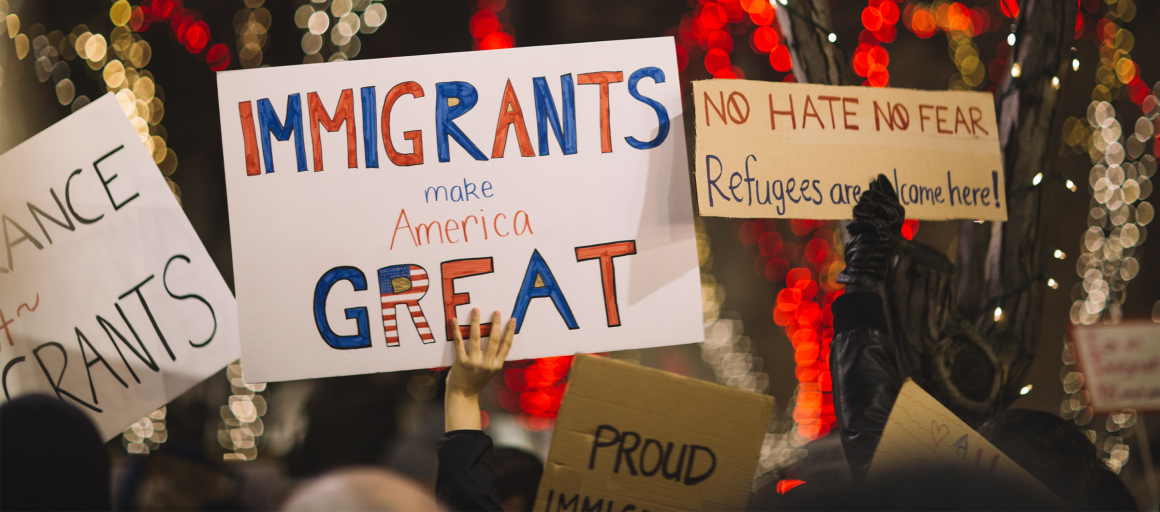 ANCE
GRANTS
IMMIGRANTS
make
America
GREAT
NO HATE NO FEAR
Refugees are lcome here!
PROUD